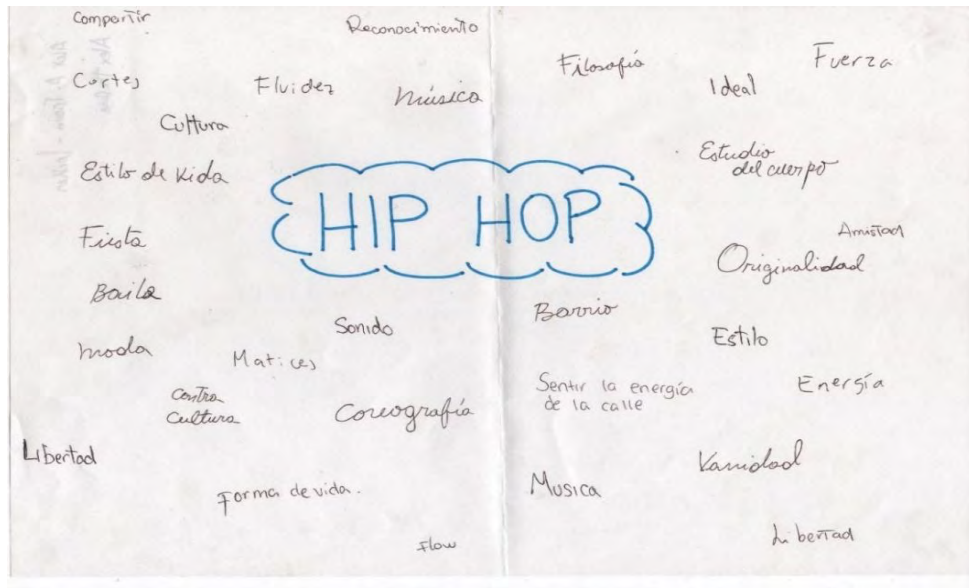 Compartir
Reconocimiento
Filosofía
Fuerza
Cortes
Fluidez
música
Ideal
Cultura
Estudio
del cuerpo
Estilo de vida
HIP HOP
Fiesta
Amistad
Originalidad
Baila
Barrio
Sonido
Estilo
moda
Matices
Sentir la energía
de la calle
Energía
contra
cultura
Coreografía
Libertad
Vanidad
Musica
Forma de vida.
Libertad
Flow